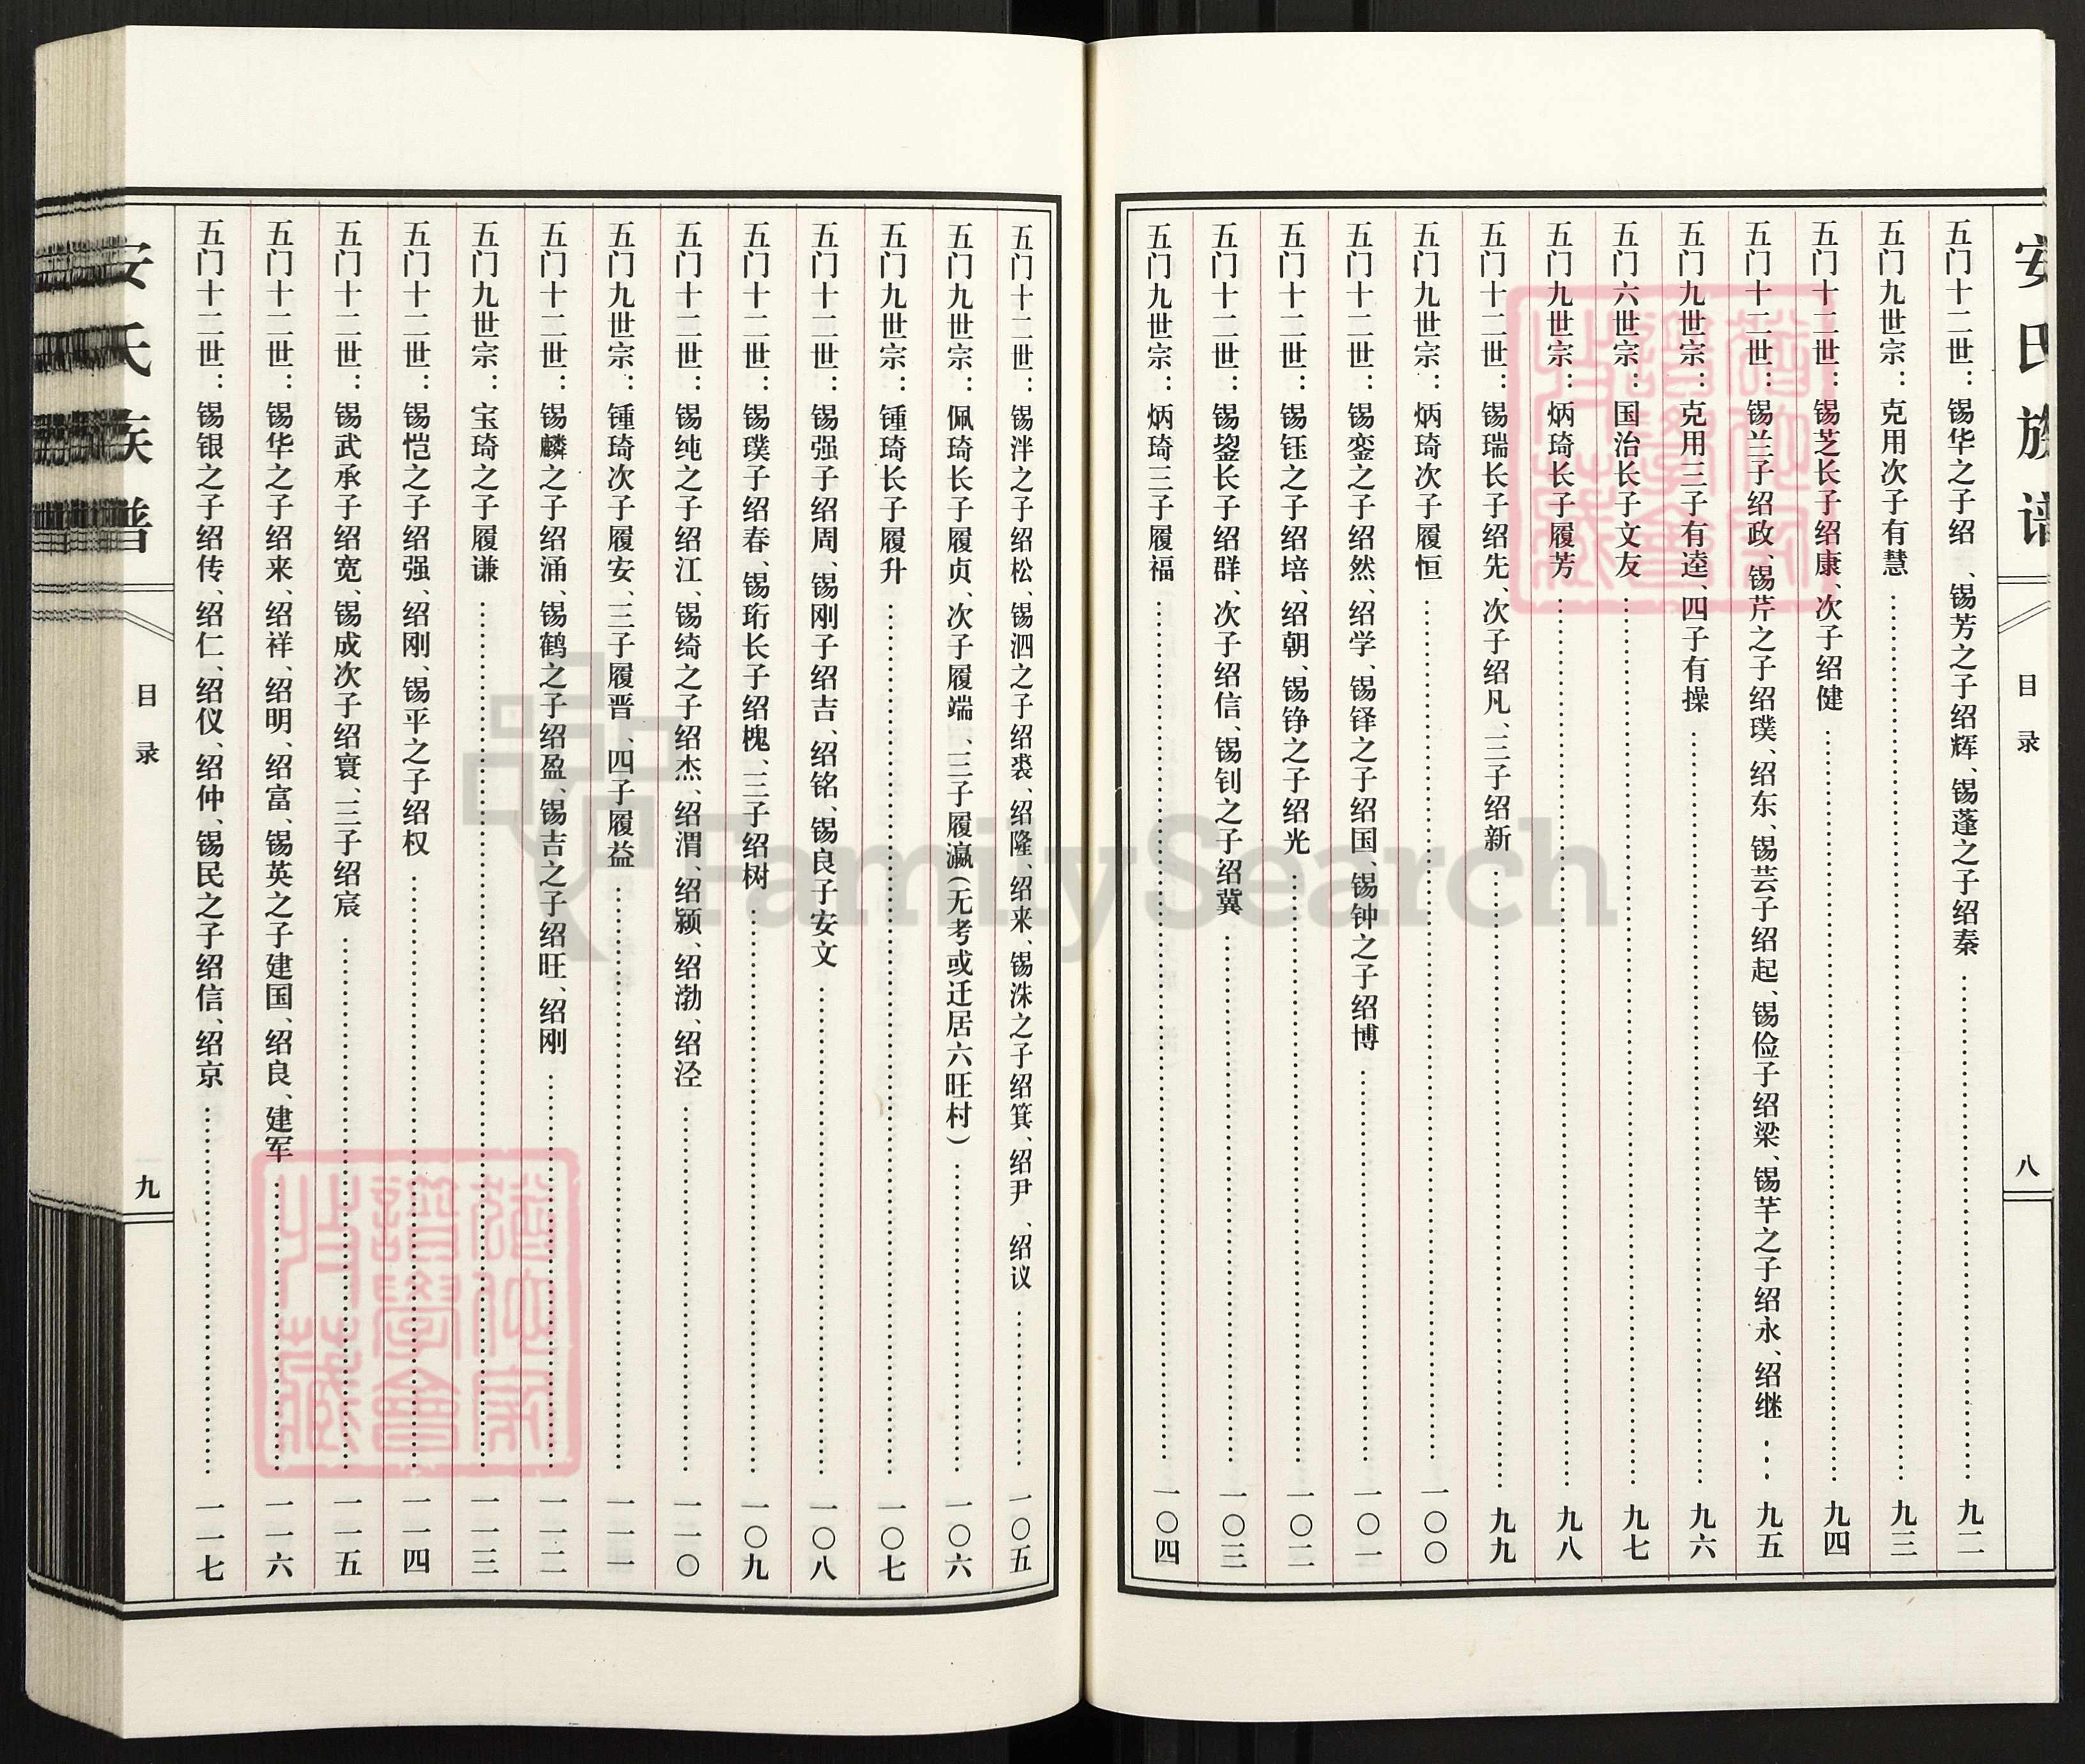 安氏族谱
目录
八
五门十二世：锡华之子绍　、锡芳之子绍辉、锡蓬之子绍秦……九二
五门九世宗：克用次子有慧……九三
五门十二世：锡芝长子绍康、次子绍健……九四
五门十二世：锡兰子绍政、锡芹之子绍璞、绍东、锡芸子绍起、锡俭子绍梁、锡芊之子绍永、绍继……九五
五门九世宗：克用三子有逵、四子有操……九六
五门六世宗：国治长子文友……九七
五门九世宗：炳琦长子履芳……九八
五门十二世：锡瑞长子绍先、次子绍凡、三子绍新……九九
五门九世宗：炳琦次子履恒……一〇〇
五门十二世：锡銮之子绍然、绍学、锡铎之子绍国、锡钟之子绍博……一〇一
五门十二世：锡钰之子绍培、绍朝、锡铮之子绍光……一〇二
五门十二世：锡鋆长子绍群、次子绍信、锡钊之子绍冀……一〇三
五门九世宗：炳琦三子履福……一〇四
五门十二世：锡泮之子绍松、锡泗之子绍裘、绍隆、绍来、锡洙之子绍箕、绍尹、绍议……一〇五
五门九世宗：佩琦长子履贞、次子履端、三子履瀛（无考或迁居六旺村）……一〇六
五门九世宗：锺琦长子履升……一〇七
五门十二世：锡强子绍周、锡刚子绍吉、绍铭、锡良子安文……一〇八
五门十二世：锡璞子绍春、锡珩长子绍槐、三子绍树……一〇九
五门十二世：锡纯之子绍江、锡绮之子绍杰、绍渭、绍颍、绍渤、绍泾……一一〇
五门九世宗：锺琦次子履安、三子履晋、四子履益……一一一
五门十二世：锡麟之子绍涌、锡鹤之子绍盈、锡吉之子绍旺、绍刚……一一二
五门九世宗：宝琦之子履谦……一一三
五门十二世：锡恺之子绍强、绍刚、锡平之子绍权……一一四
五门十二世：锡武承子绍宽、锡成次子绍寰、三子绍宸……一一五
五门十二世：锡华之子绍来、绍祥、绍明、绍富、锡英之子建国、绍良、建军……一一六
五门十二世：锡银之子绍传、绍仁、绍仪、绍仲、锡民之子绍信、绍京……一一七
安氏族谱
目录
九
FamilySearch